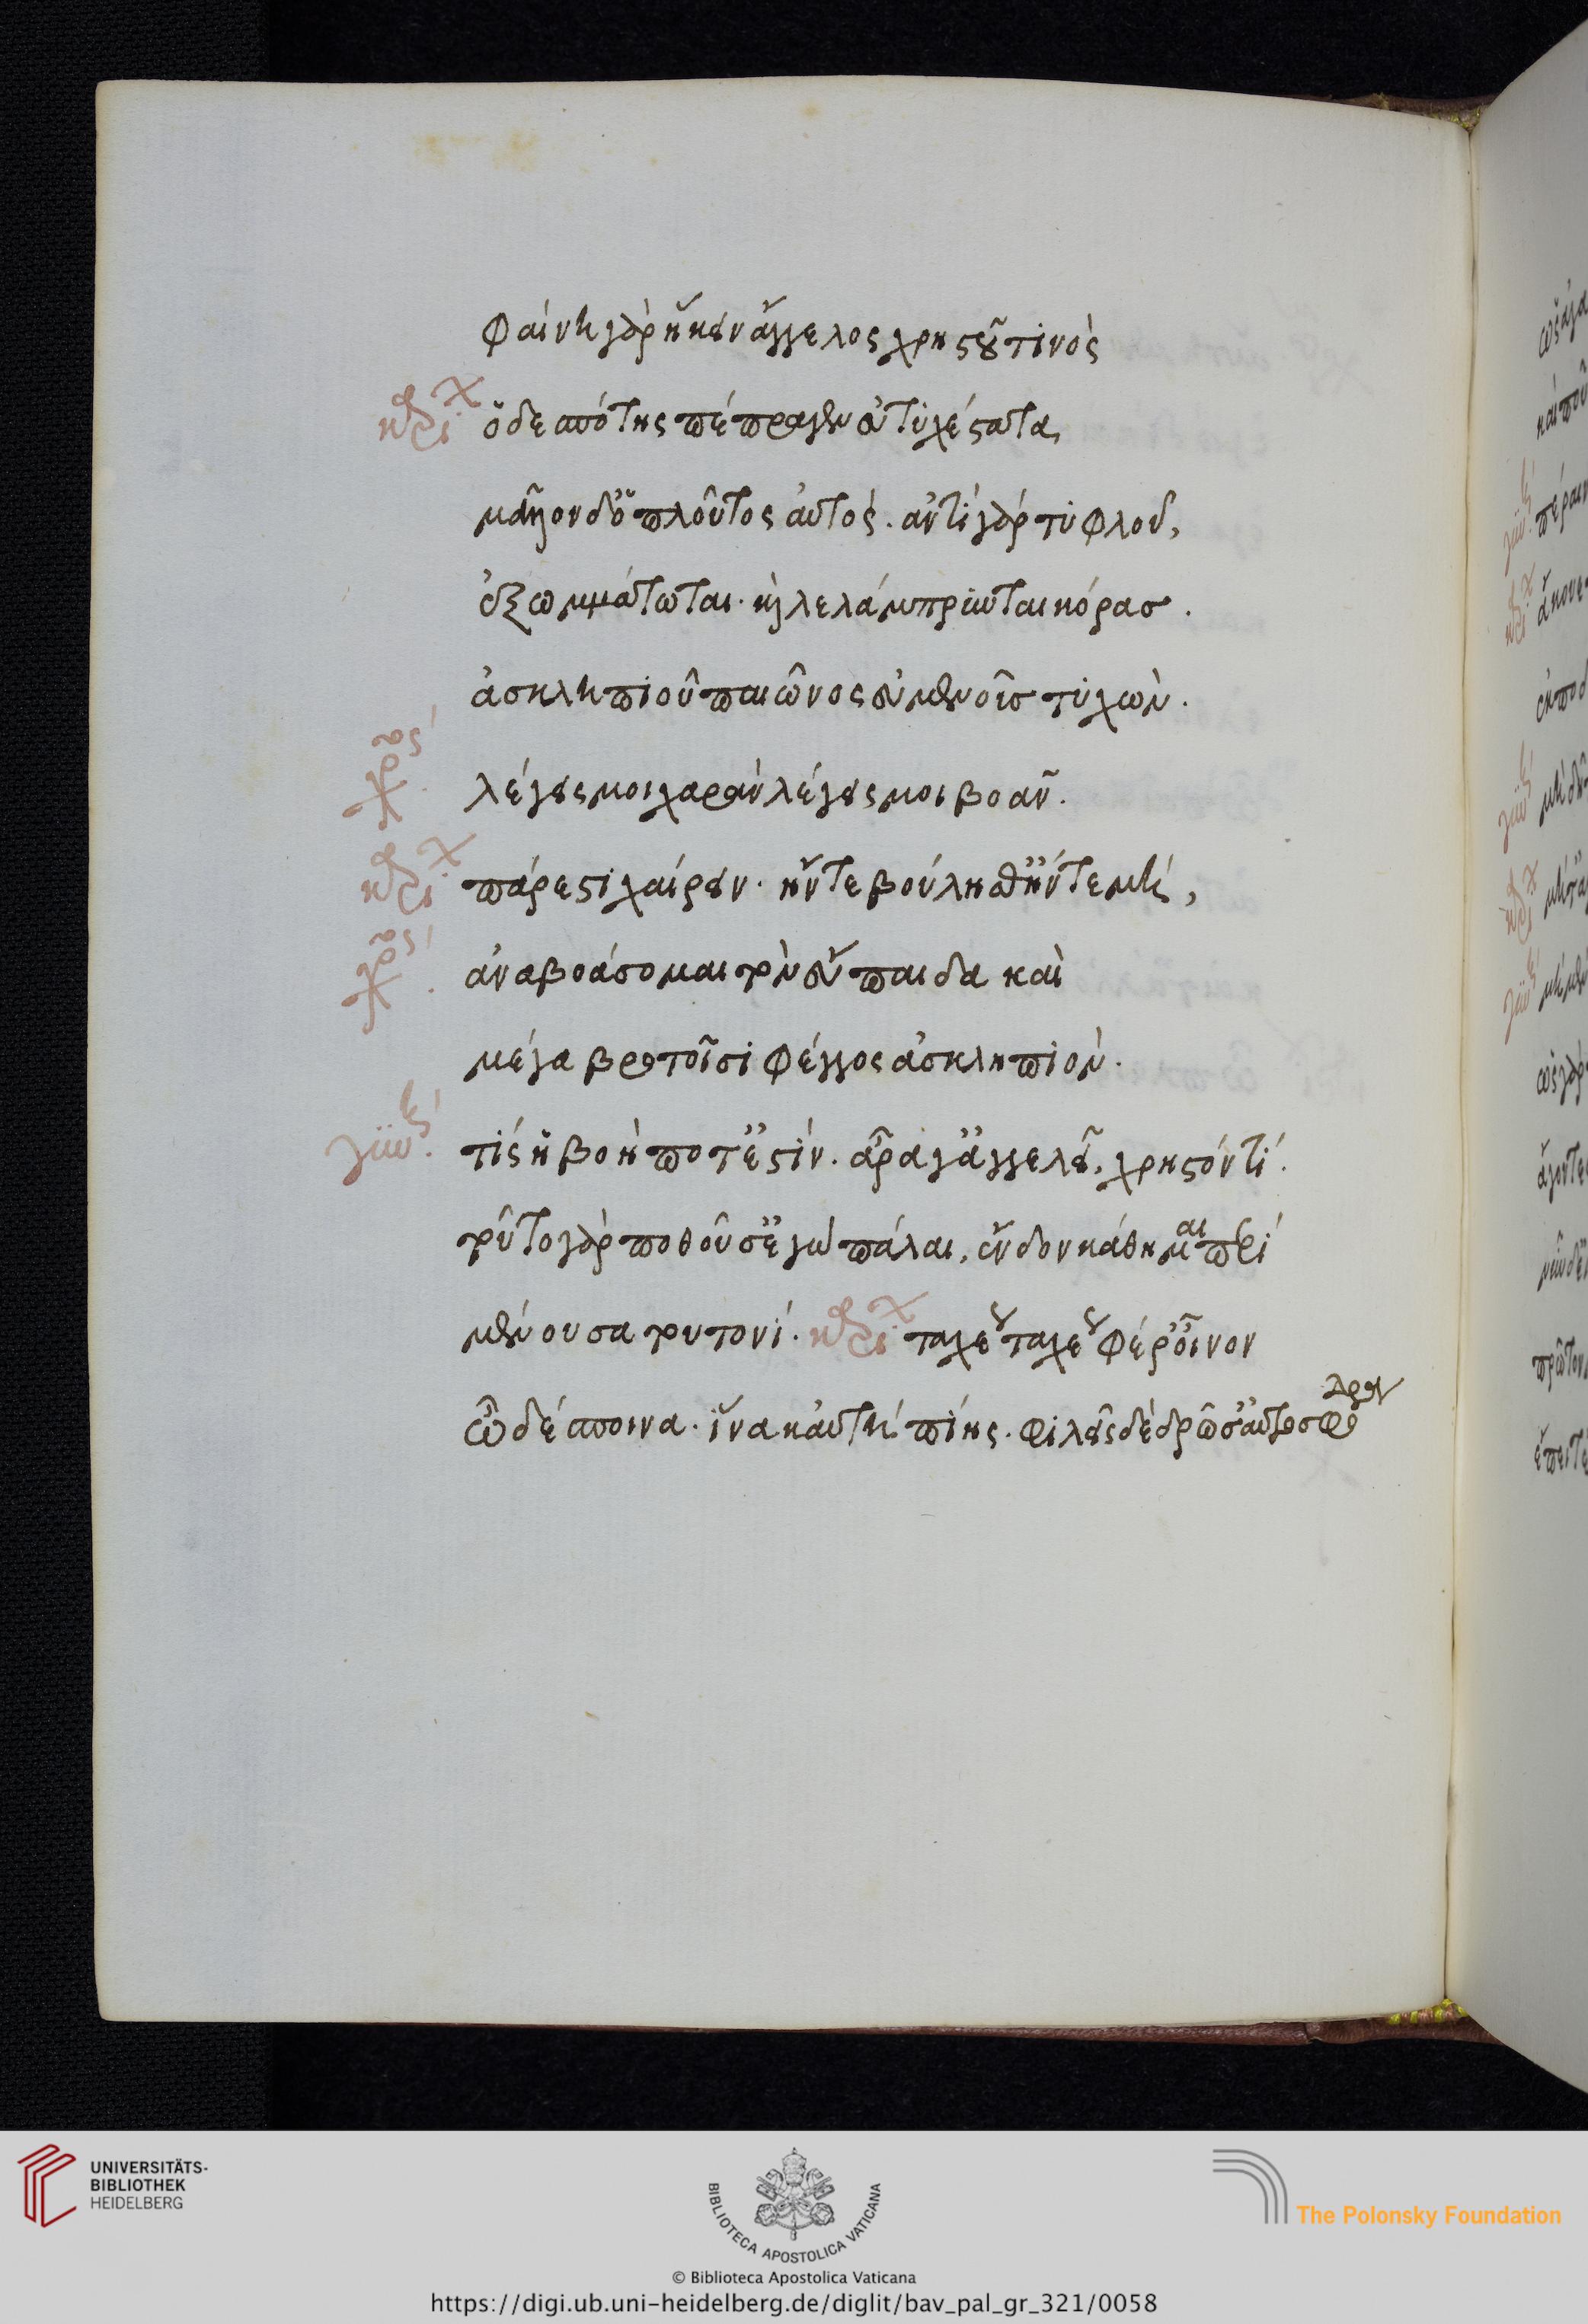 φαίνη γὰρ ἥκειν ἄγγελος χρηστοῦ τινὸς
καρί χ ὁ δεσπότης πέπραγεν εὐτυχέστατα,
μᾶλλον δ' ὁ πλοῦτος αὐτός. ἀντὶ γὰρ τυφλοῦ,
ἐξωμμάτωται. καὶ λελάμπρυνται κόρας.
ἀσκληπιοῦ παιῶνος εὐμενοῦς τυχών.
χρς λέγεις μοι χαρὰν λέγεις μοι βοάν.
καρί χ πάρεστι χαίρειν. ἤν τε βούλησθ' ἤν τε μή,
χρς ἀναβοάσομαι τὸν εὔπαιδα καὶ
μέγα βροτοῖσι φέγγος ἀσκληπιόν.
γυν τίς ἡ βοή ποτ' ἐστίν. ἆρά γ' ἀγγελεῖ, χρηστόν τί.
τοῦτο γὰρ ποθοῦσ' ἐγὼ πάλαι, ἔνδον κάθημαι περι
μένουσα τουτονί. καρί χ ταχέως ταχέως φέρ' οἶνον
ὦ δέσποινα. ἵνα καὐτὴ πίῃς. φιλεῖς δὲ δρῶσ' αὐτὸ σφόδρα
UNIVERSITÄTS-
BIBLIOTHEK
HEIDELBERG
BIBLIOTECA APOSTOLICA VATICANA
The Polonsky Foundation
© Biblioteca Apostolica Vaticana
https://digi.ub.uni-heidelberg.de/diglit/bav_pal_gr_321/0058